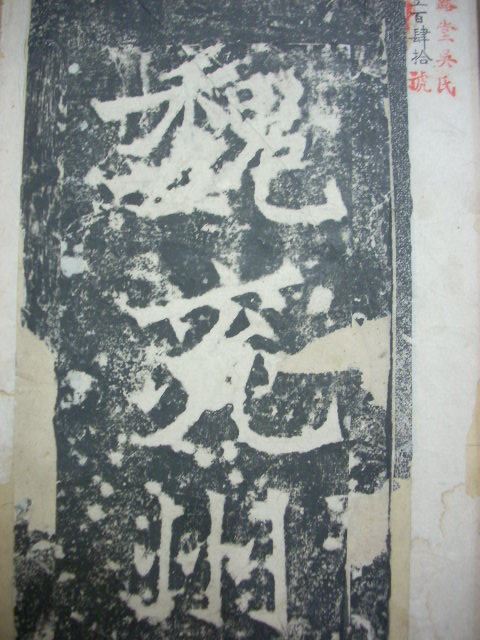 堂吳氏
百肆拾號
魏兗州